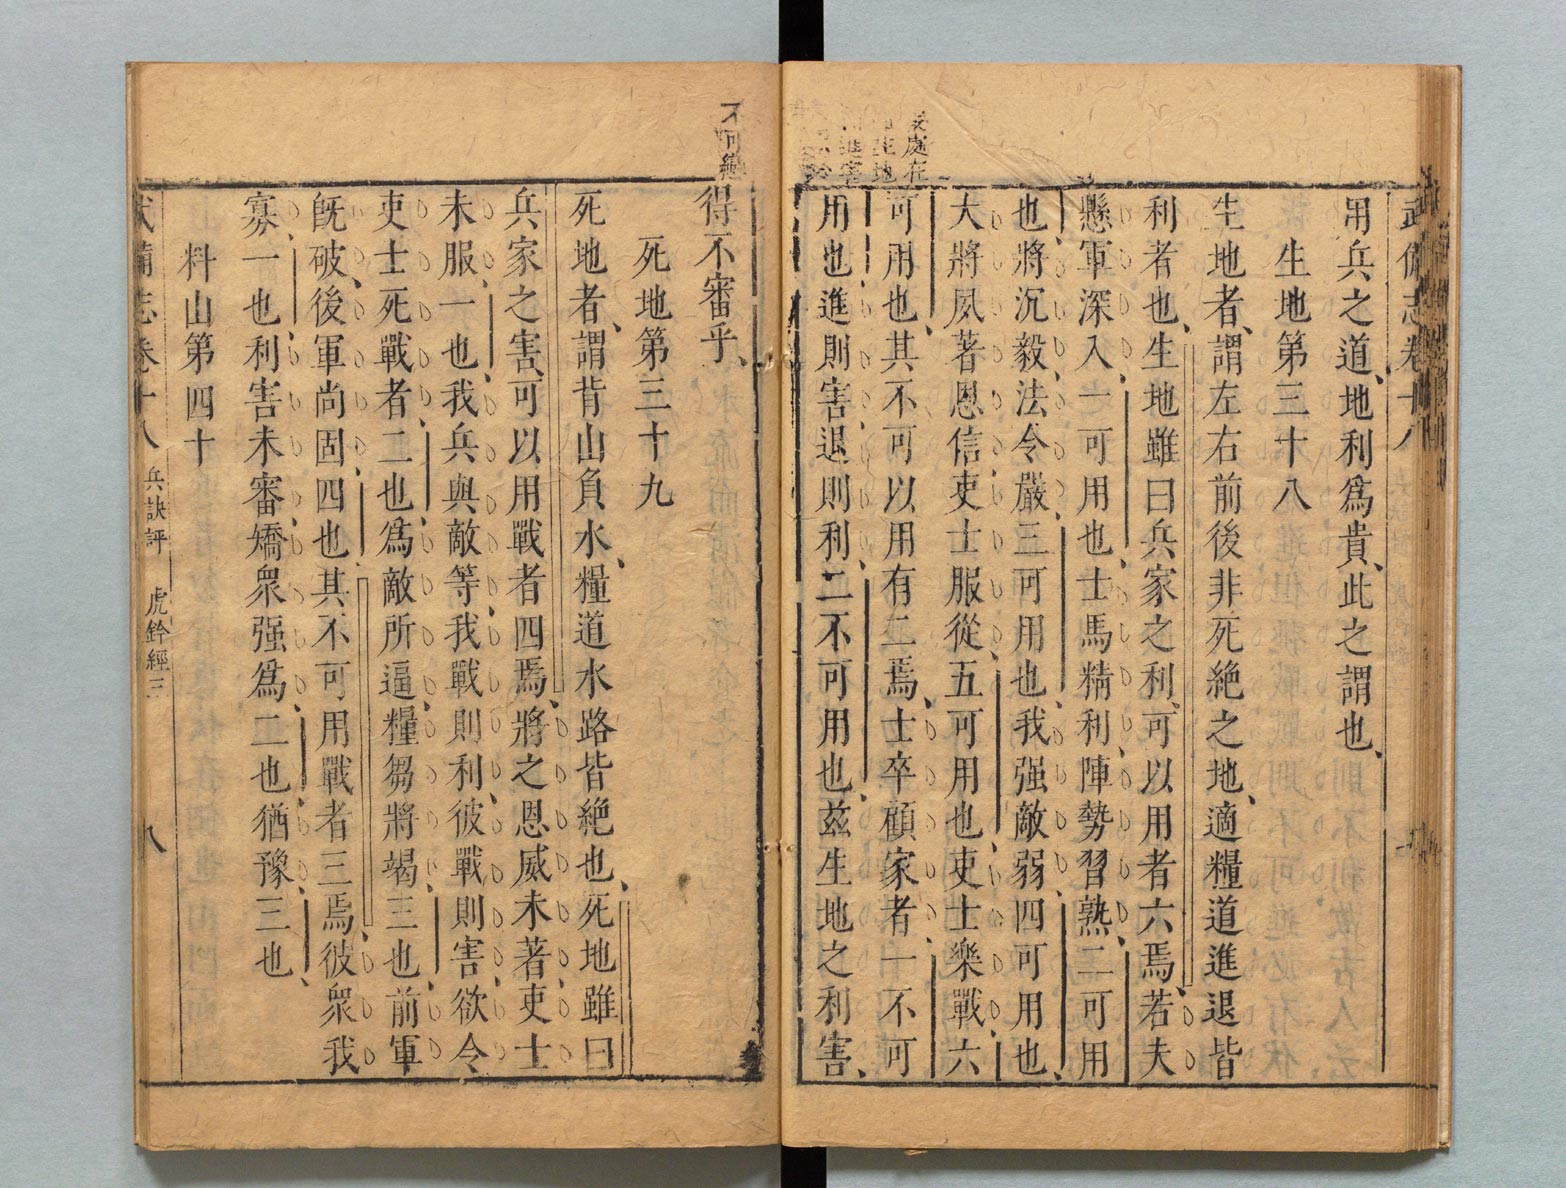 武備志卷十八
用兵之道、地利爲貴、此之謂也、
生地第三十八
生地者、謂左右前後非死絶之地、適糧道進退皆
利者也、生地雖曰兵家之利、可以用者六焉、若夫
懸軍深入、一可用也、士馬精利、陣勢習熟、二可用
也、將沉毅、法令嚴、三可用也、我强敵弱、四可用也、
大將夙著恩信、吏士服從、五可用也、吏士樂戰、六
可用也、其不可以用有二焉、士卒顧家者、一不可
用也、進則害、退則利、二不可用也、兹生地之利害、
得不審乎、
死地第三十九
死地者、謂背山負水、糧道水路皆絶也、死地雖曰
兵家之害、可以用戰者四焉、將之恩威未著、吏士
未服、一也、我兵與敵等、我戰則利、彼戰則害、欲令
吏士死戰者、二也、爲敵所逼、糧芻將竭、三也、前軍
旣破、後軍尚固、四也、其不可用戰者三焉、彼衆我
寡、一也、利害未審、嬌衆强爲、二也、猶豫、三也、
料山第四十
武備志卷十八 兵訣評 虎鈐經三 八
處在
生地
不可